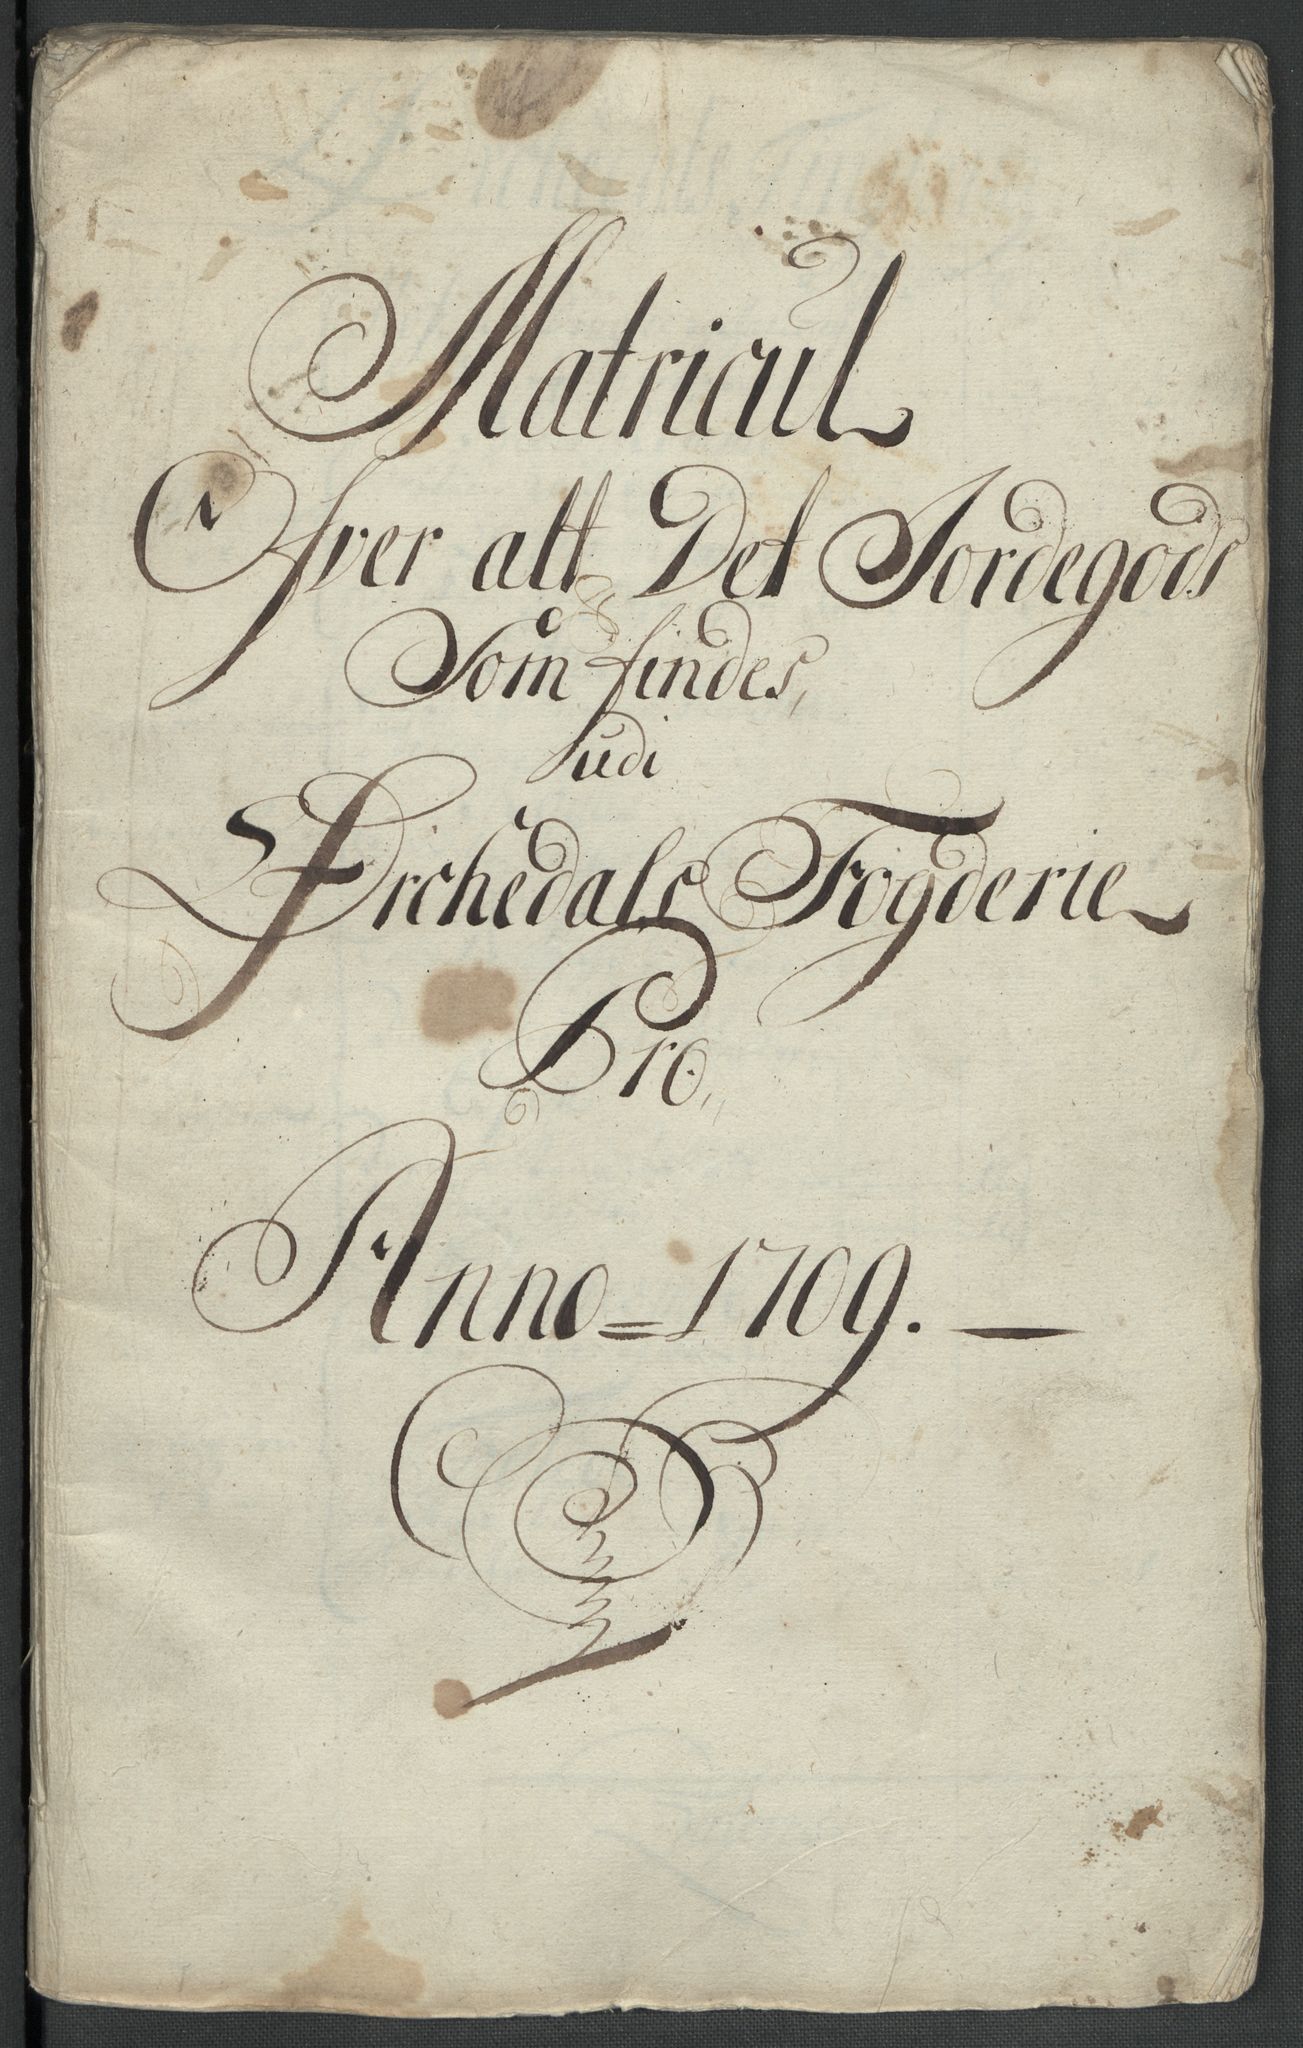 Matricul
Ofver alt Det Jordegods
Som findes,
udi
Ørchedals Fogderie
Pro,,
Anno = 1709. —